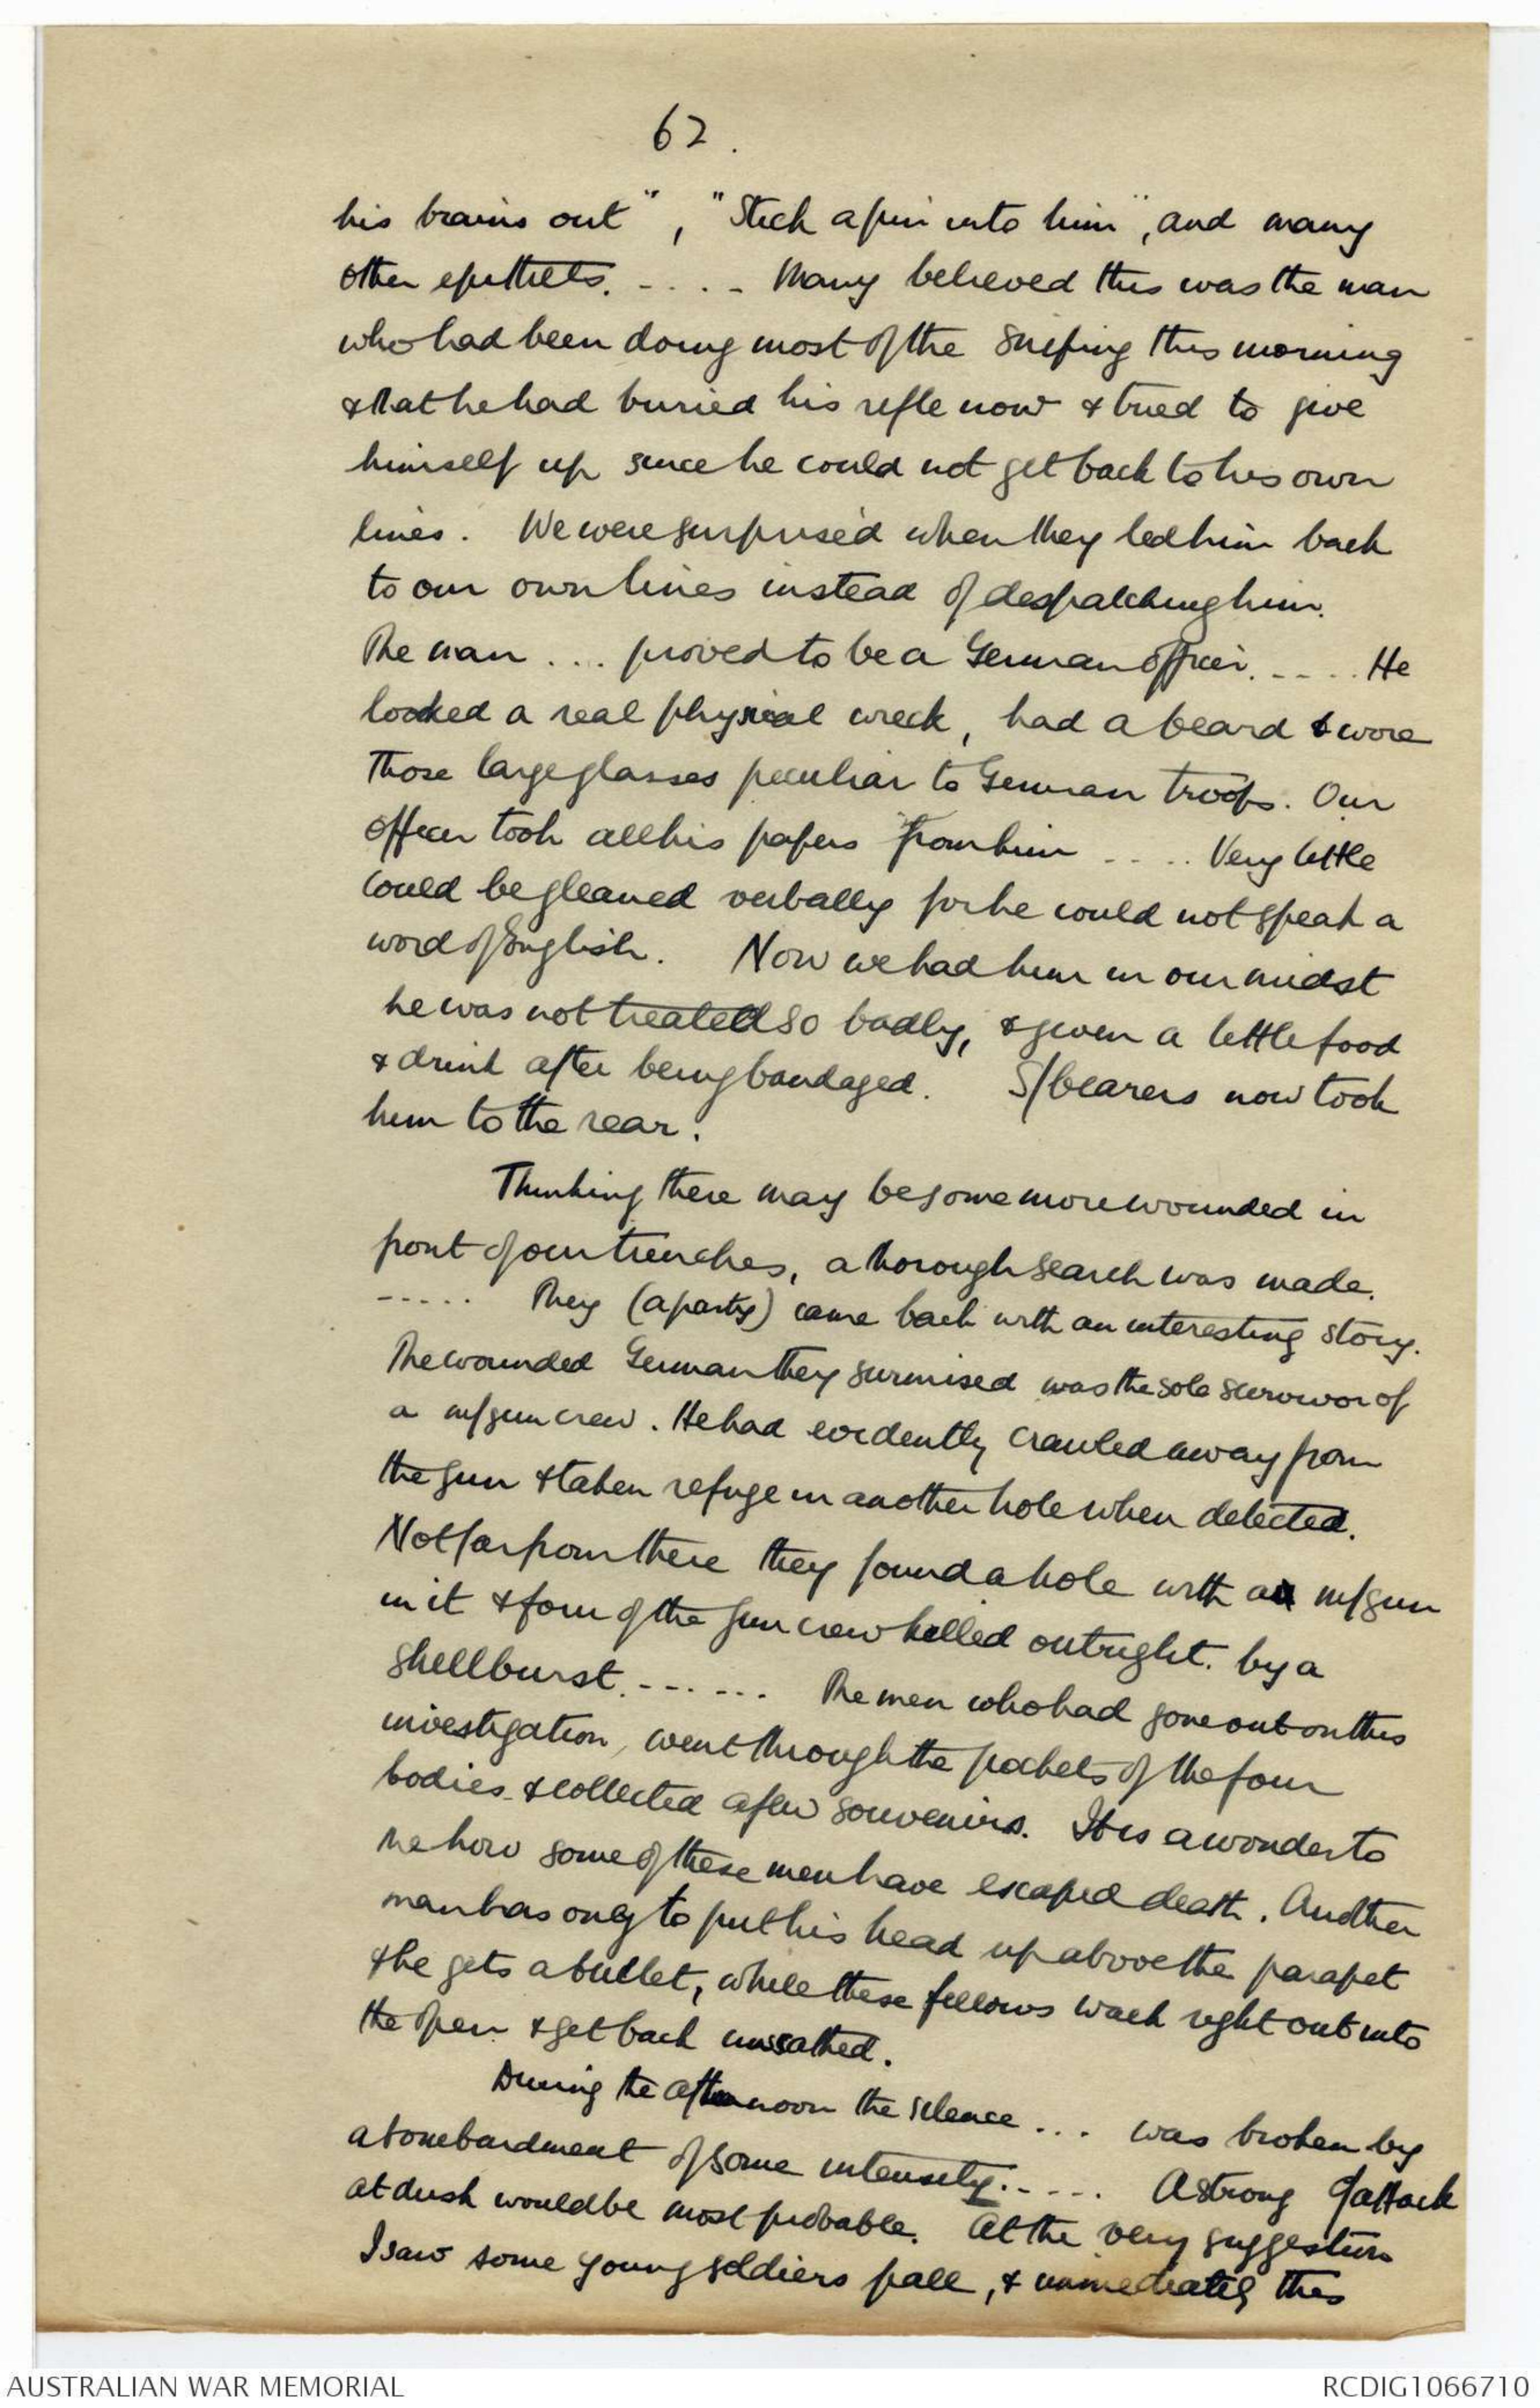 62.
his brains out", "Stick a pin into him", and many
other epithets. - . . - Many believed this was the man
who had been doing most of the sniping this morning
& that he had buried his rifle now & tried to give
himself up since he could not get back to his own
lines. We were surprised when they led him back
to our own lines instead of despatching him.
The man .... proved to be a German officer. - - . . He
looked a real physical wreck, had a beard & wore
those large glasses peculiar to German troops. Our
officer took all his papers from him - - . . Very little
could be gleaned verbally for he could not speak a
word of English. Now we had him in our midst
he was not treated so badly, & given a little food
& drink after being bandaged. S/bearers now took
him to the rear.
Thinking there may be some more wounded in
front of our trenches, a thorough search was made.
- - - . . They (a party) came back with an interesting story.
The wounded German they surmised was the sole survivor of
a m/gun crew. He had evidently crawled away from
the gun & taken refuge in another hole when detected.
Not far from there they found a hole with a m/gun
in it & four of the gun crew killed outright. by a
shellburst. - - . - . . The men who had gone out on this
investigation, went through the pockets of the four
bodies & collected a few souvenirs. It is a wonder to
me how some of these men have escaped death. Another
man has only to put his head up above the parapet
& he gets a bullet, while these fellows walk right out into
the open & get back unscathed.
During the afternoon the silence ... was broken by
a bombardment of some intensity. - - . . A strong C/attack
at dusk would be most probable. At the very suggestion
I saw some young soldiers pale, & immediately this
AUSTRALIAN WAR MEMORIAL
RCDIG1066710